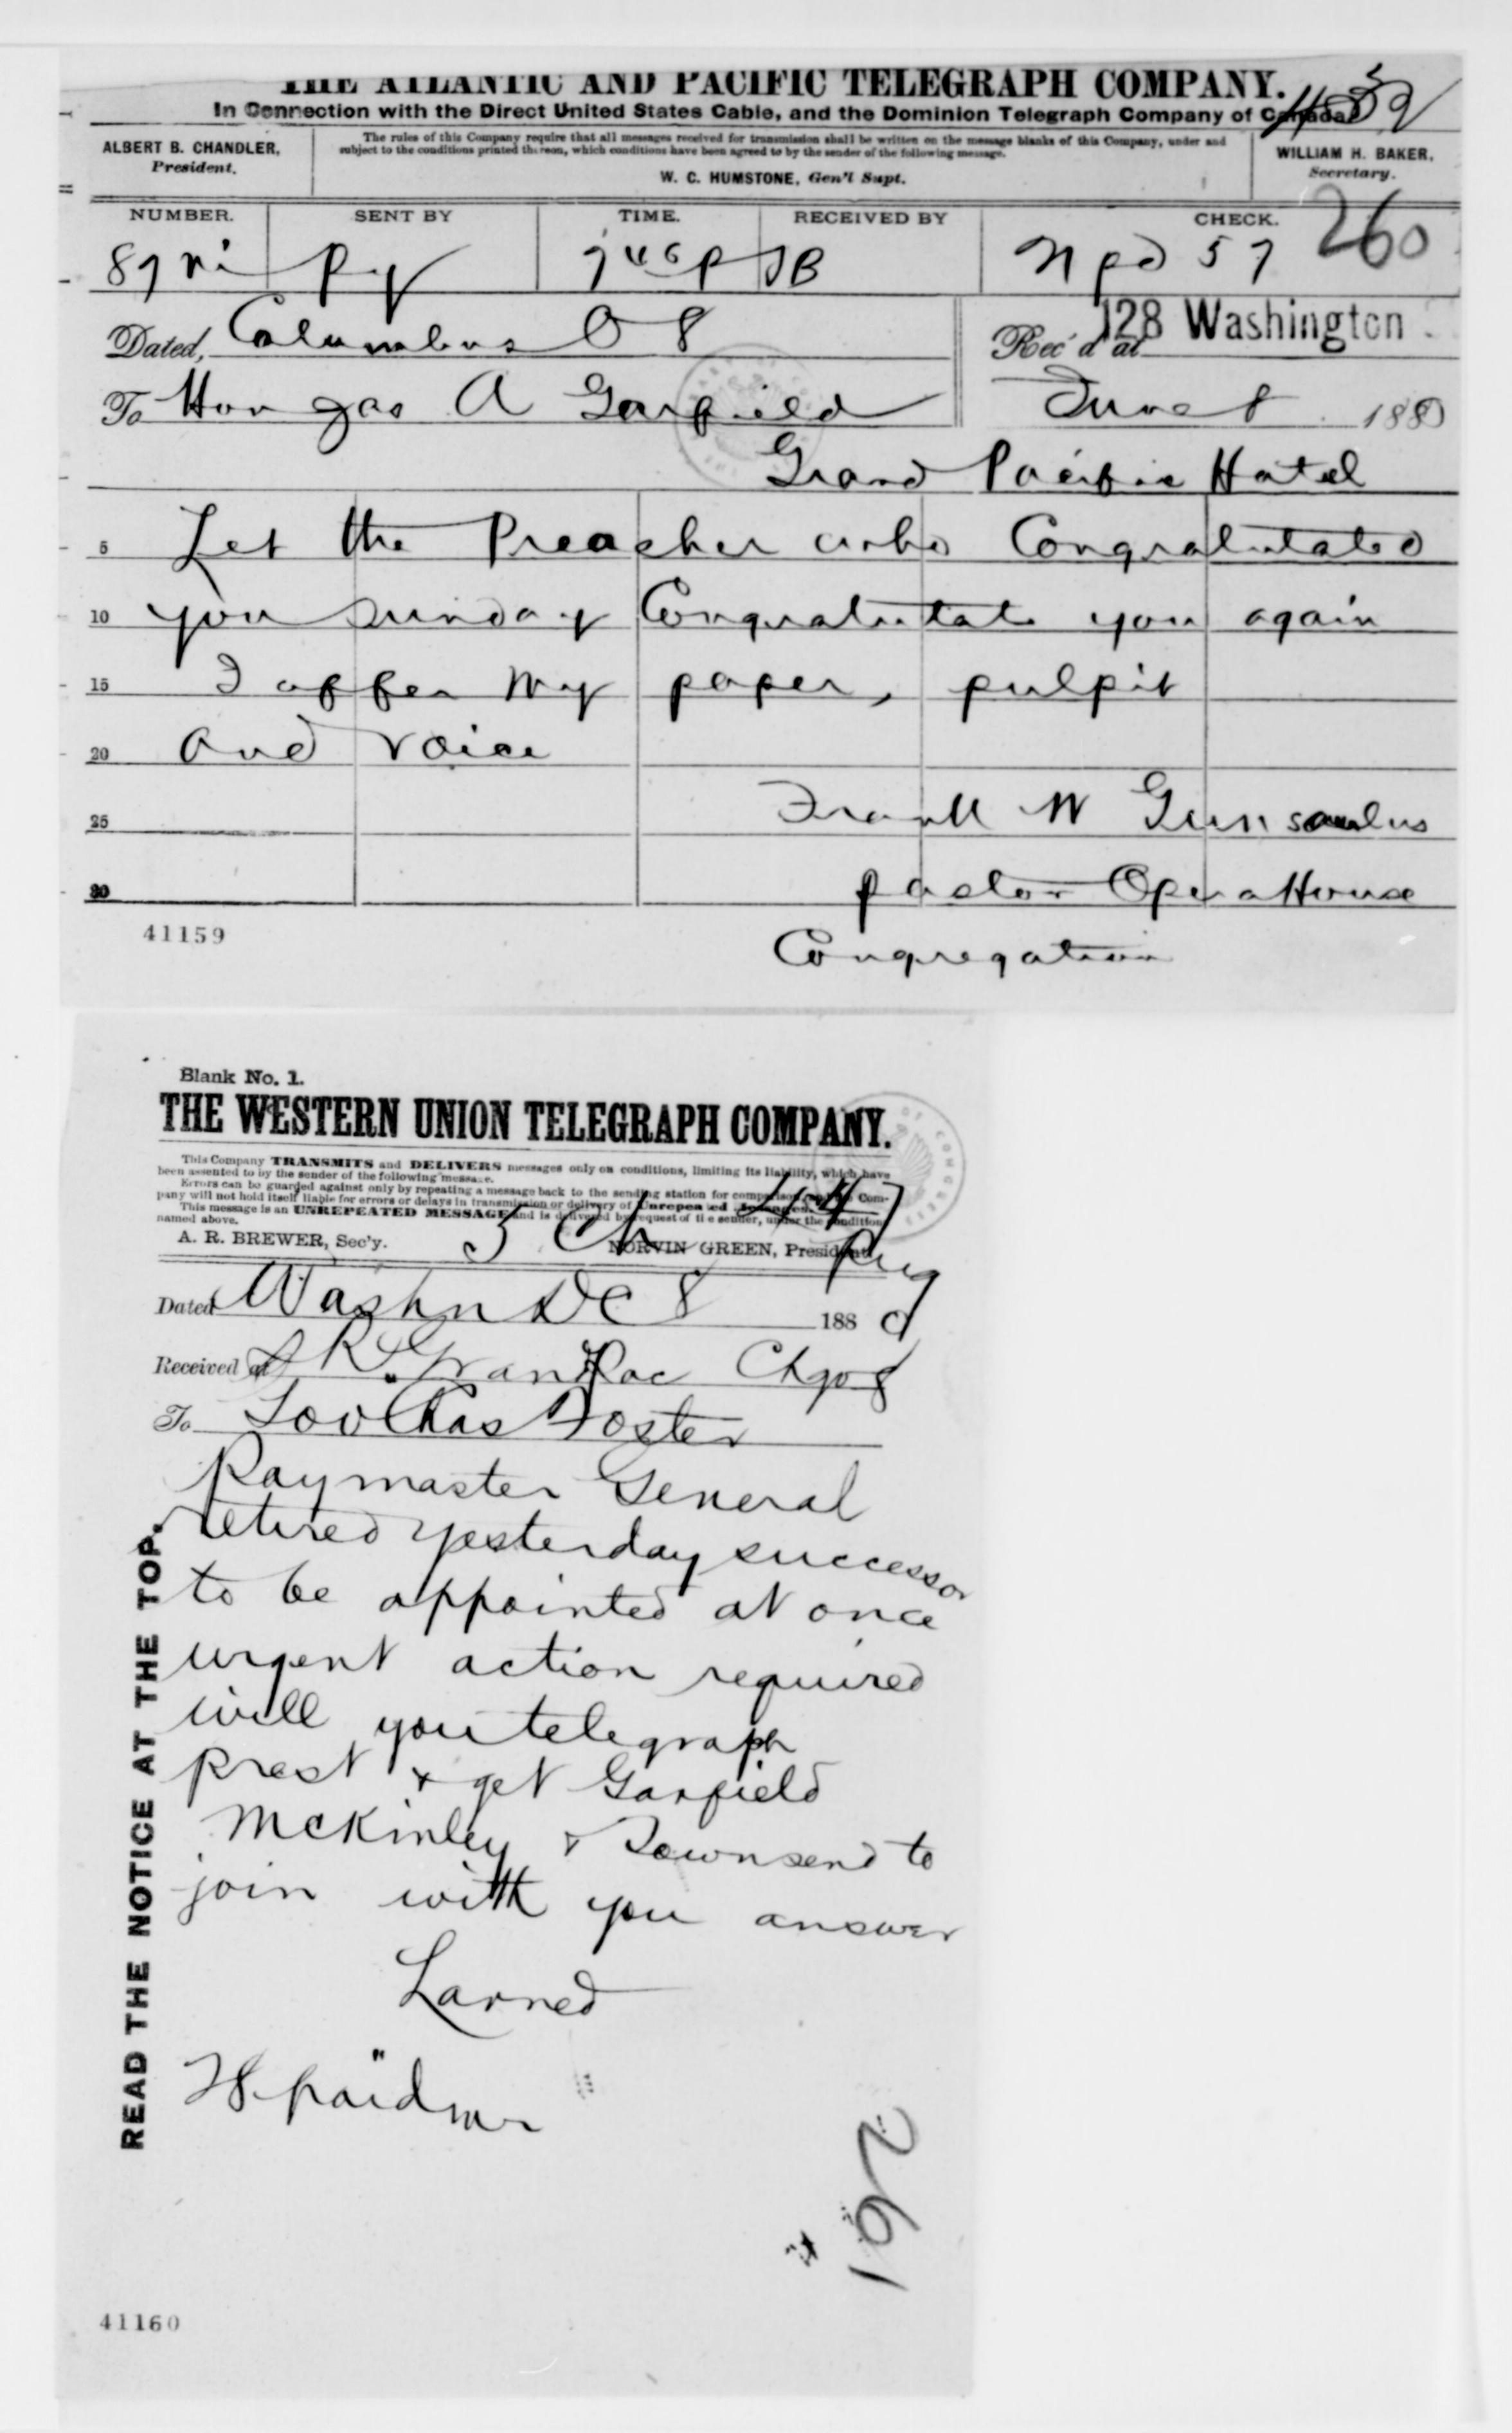 THE ATLANTIC AND PACIFIC TELEGRAPH COMPANY.
In Connection with the Direct United States Cable, and the Dominion Telegraph Company of Canada.
ALBERT B. CHANDLER,
President.
The rules of this Company require that all messages received for transmission shall be written on the message blanks of this Company, under and
subject to the conditions printed thereon, which conditions have been agreed to by the sender of the following message.
W. C. HUMSTONE, Gen'l Supt.
WILLIAM H. BAKER,
Secretary.
NUMBER. SENT BY TIME. RECEIVED BY CHECK. 260
87 JB 57
Dated, Columbus O 8 Rec'd at 128 Washington
To Hon Jas A Garfield June 8 1880
Grand Pacific Hotel
5 Let the Preacher who Congratulated
10 you Sunday Congratulate you again
15 I offer my paper, pulpit
20 and voice
25 Frank W Gunsaulus
30 pastor Opera House
Congregation
41159
Blank No. 1.
THE WESTERN UNION TELEGRAPH COMPANY.
This Company TRANSMITS and DELIVERS messages only on conditions, limiting its liability, which have
been assented to by the sender of the following message.
Errors can be guarded against only by repeating a message back to the sending station for comparison, and the Com-
pany will not hold itself liable for errors or delays in transmission or delivery of Unrepeated Messages.
This message is an UNREPEATED MESSAGE and is delivered by request of the sender, under the conditions
named above.
A. R. BREWER, Sec'y. NORVIN GREEN, President.
Dated Washn DC 8 1880
Received at Gran Pac Chgo 8
To Gov Chas Foster
Paymaster General
retired yesterday successor
to be appointed at once
urgent action required
will you telegraph
prest & get Garfield
McKinley & Townsend to
join with you answer
Larned
28 paid
READ THE NOTICE AT THE TOP.
261
41160